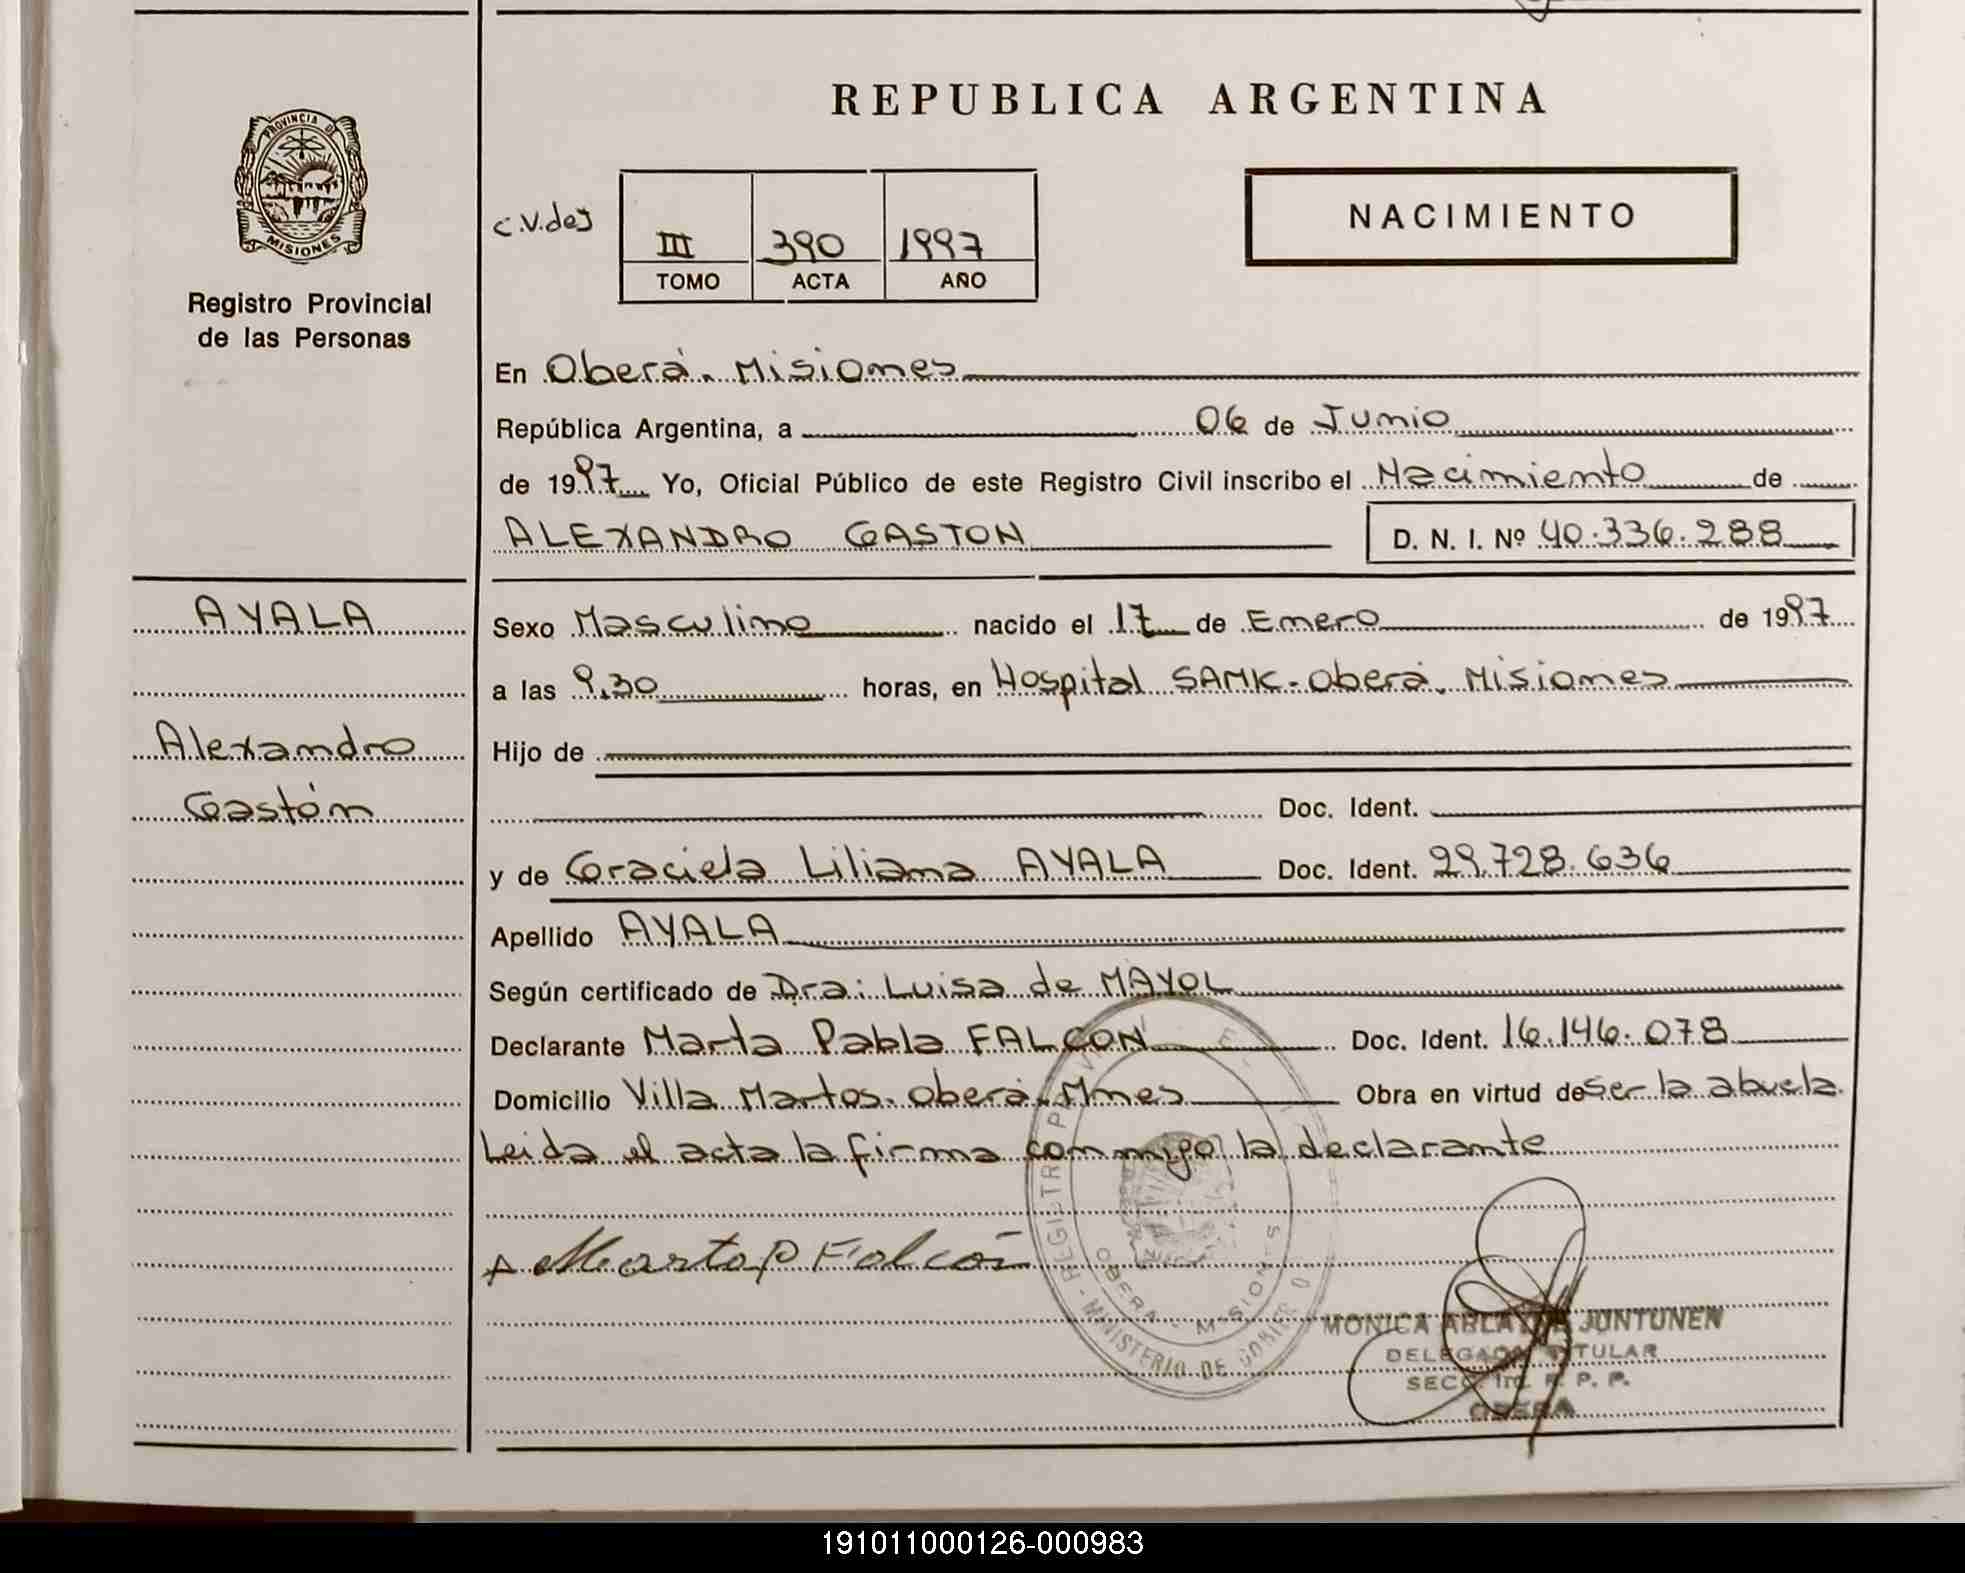 REPUBLICA ARGENTINA
PROVINCIA DE
MISIONES
Registro Provincial
de las Personas
c.v.des
III 390 1997
TOMO ACTA AÑO
NACIMIENTO
En Oberá. Misiones
República Argentina, a 06 de Junio
de 1997 Yo, Oficial Público de este Registro Civil inscribo el Nacimiento de
ALEXANDRO GASTON D. N. I. Nº 40.336.288
AYALA
Alexandro
Gastón
Sexo Masculino nacido el 17 de Enero de 1997
a las 9.30 horas, en Hospital SAMK-Oberá. Misiones
Hijo de
Doc. Ident.
y de Graciela Liliana AYALA Doc. Ident. 29.728.636
Apellido AYALA
Según certificado de Dra: Luisa de MAYOL
Declarante Marta Pabla FALCON Doc. Ident. 16.146.078
Domicilio Villa Martos. Oberá. Mnes Obra en virtud de ser la abuela.
Leida el acta la firma conmigo la declarante
Marta P Falcón
OBERA - MISIONES
MINISTERIO DE GOBIERNO
MONICA JUNTUNEN
DELEGADA TITULAR
R. P. P.
OBERA
191011000126-000983